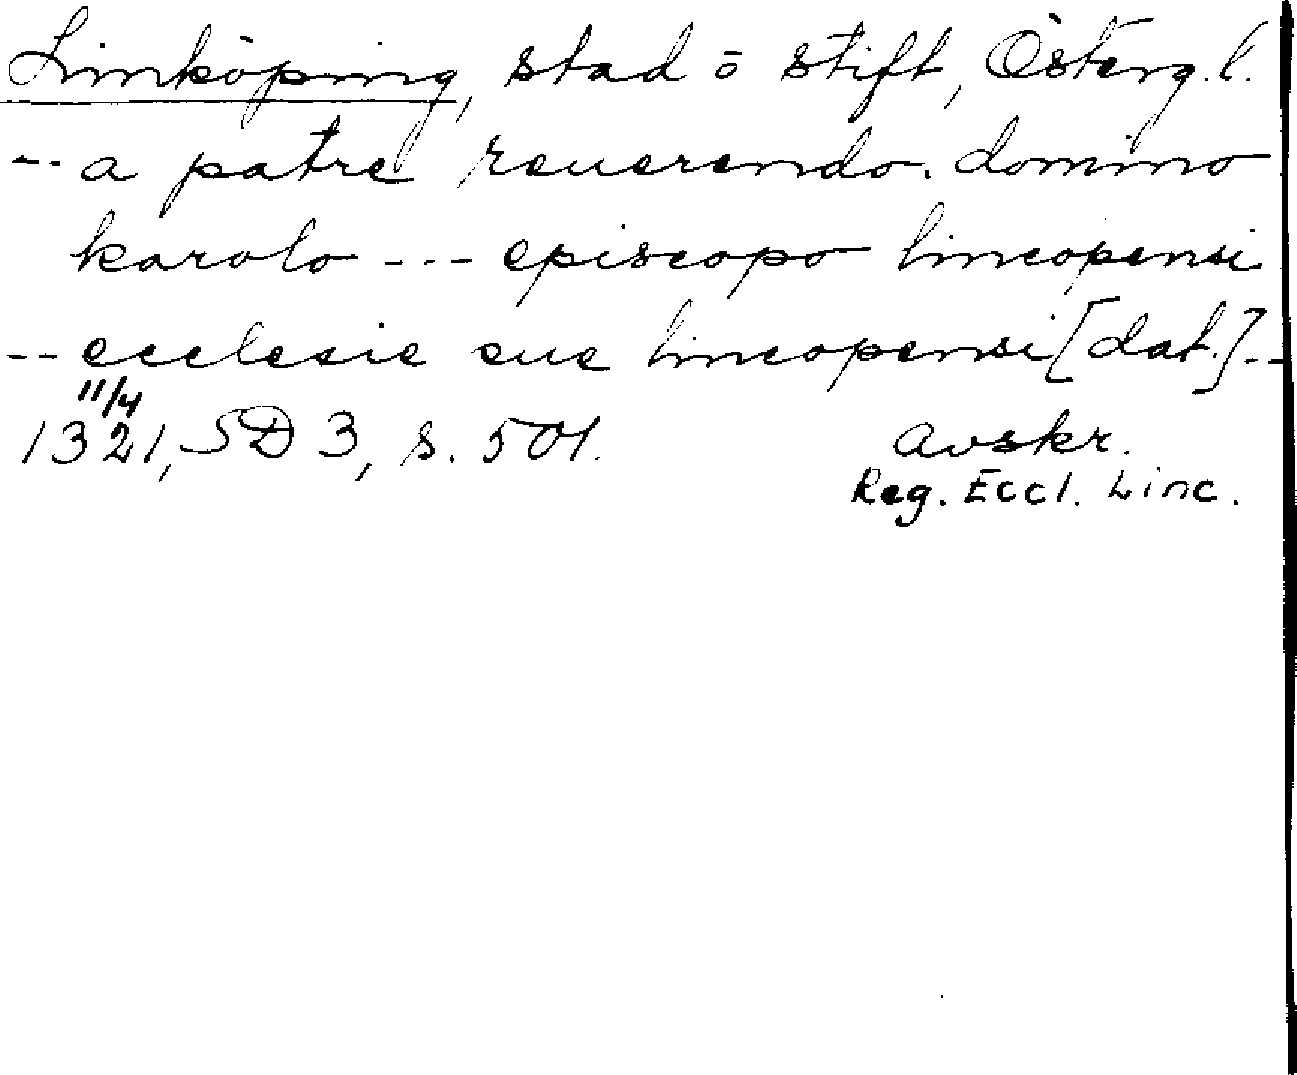 Linköping, stad o stift, Österg.l.
--- a patre reuerendo. domino
karolo --- episcopo lincopensi
-- ecclesie sue lincopensi [dat.] --
11/4
1321, SD 3, s. 501. Avskr.
Reg. Eccl. Linc.